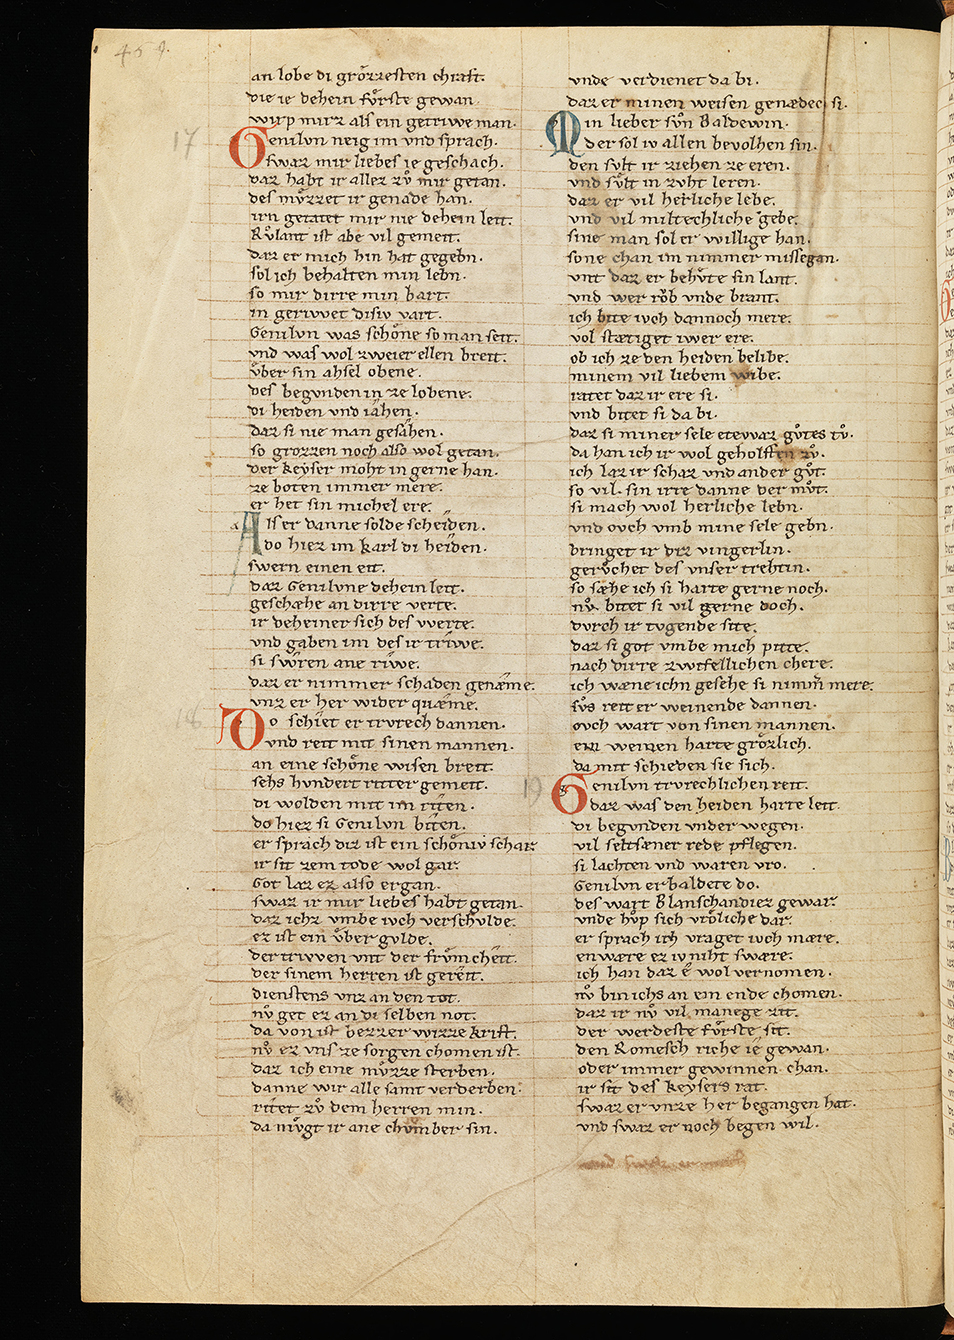 459.
an lobe di grozzesten chraft.
die ie dehein fůrste gewan.
wirp mirz als ein getriwe man.
17
Genilvn neig im vnd sprach.
swaz mir liebes ie geschach.
daz habt ir allez zů mir getan.
des můzzet ir genade han.
irn getatet mir nie dehein leit.
Růlant ist abe vil gemeit.
daz er mich hin hat gegebn.
sol ich behalten min lebn.
so mir dirre min bart.
in geriwet disiv vart.
Genilvn was schône so man seit.
vnd was wol zweier ellen breit.
vͦber sin ahsel obene.
des begvnden in ze lobene.
di heiden vnd iâhen.
daz si nie man gesâhen.
so grozzen noch also wol getan.
der keyser moht in gerne han.
ze boten immer mere.
er het sin michel ere.
Als er danne solde scheiden.
do hiez im karl di heiden.
swern einen eit.
daz Genilvne dehein leit.
geschæhe an dirre verte.
ir deheiner sich des werte.
vnd gaben im des ir triwe.
si swͦren ane riwe.
daz er nimmer schaden genæme.
vnz er her wider quæme.
18
Do schiet er trvrech dannen.
vnd reit mit sinen mannen.
an eine schône wisen breit.
sehs hvndert ritter gemeit.
di wolden mit im riten.
do hiez si Genilvn biten.
er sprach diz ist ein schôniv schar
ir sit zem tode wol gar.
Got laz ez also ergan.
swaz ir mir liebes habt getan.
daz ichz vmbe ivch verschvlde.
ez ist ein vͦber gvlde.
der triwen vnt der frůmcheit.
der sinem herren ist gereit.
dienstens vnz an den tot.
nv̊ get ez an di selben not.
da von ist bezzer wizze krist.
nv̊ ez vns ze sorgen chomen ist.
daz ich eine mv̊zze sterben.
danne wir alle samt verderben.
ritet zů dem herren min.
da mv̊gt ir ane chv̊mber sin.
vnde verdienet da bi.
daz er minen weisen genædec si.
Min lieber svͦn Baldewin.
der sol iv allen bevolhen sin.
den svlt ir ziehen ze eren.
vnd svͦlt in zvht leren.
daz er vil herliche lebe.
vnd vil miltechliche gebe.
sine man sol er willige han.
sone chan im nimmer missegan.
vnt daz er behv̊te sin lant.
vnd wer rôb vnde brant.
ich bite ivch dannoch mere.
vol stætiget iwer ere.
ob ich ze den heiden belibe.
minem vil liebem wibe.
ratet daz ir ere si.
vnd bitet si da bi.
daz si miner sele etewaz gůtes tv̊.
da han ich ir wol geholffen zv̊.
ich laz ir schaz vnd ander gůt.
so vil. sin irre danne der mv̊t.
si mach wol herliche lebn.
vnd ovch vmb mine sele gebn.
bringet ir diz vingerlin.
gerůchet des vnser trehtin.
so sæhe ich si harte gerne noch.
nv̊ bitet si vil gerne doch.
dvrch ir tvgende site.
daz si got vmbe mich pitte.
nach dirre zwifellichen chere.
ich wæne ichn gesehe si nimm̄ mere.
svͦs reit er weinende dannen.
ovch wart von sinen mannen.
ein weinen harte grôzlich.
da mit schieden sie sich.
19
Genilvn trvrechlichen reit.
daz was den heiden harte leit.
di begvnden vnder wegen.
vil seltsæner rede pflegen.
si lachten vnd waren vro.
Genilvn erbaldete do.
des wart Blanschandiez gewar
vnde hv̊p sich vrôliche dar.
er sprach ich vraget ivch mære.
enwære ez iv niht swære.
ich han daz ê wol vernomen.
nv̊ bin ichs an ein ende chomen.
daz ir nv̊ vil manege zit.
der werdeste fůrste sit.
den Romesch riche ie gewan.
oder immer gewinnen chan.
ir sit des keysers rat.
swaz er vnze her begangen hat.
vnd swaz er noch begen wil.